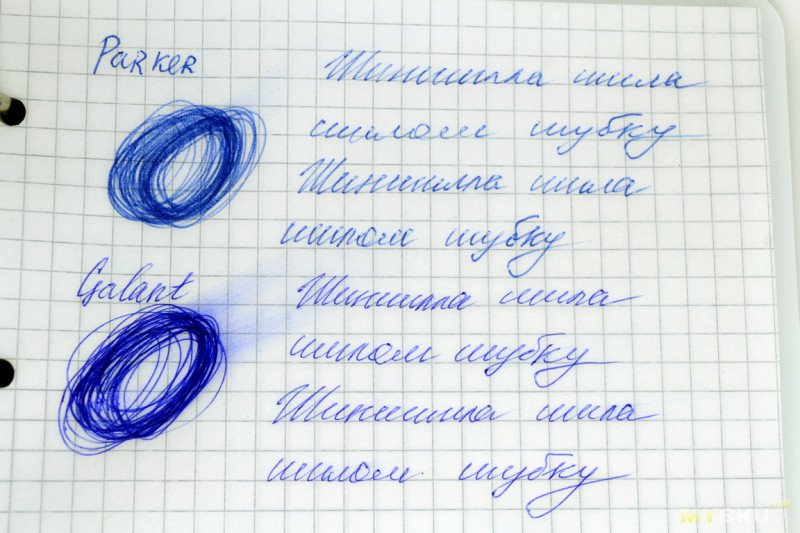 Parker
Шиншилла шила
шилом шубку
Шиншилла шила
шилом шубку
Galant
Шиншилла шила
шилом шубку
Шиншилла шила
шилом шубку
MYSKU